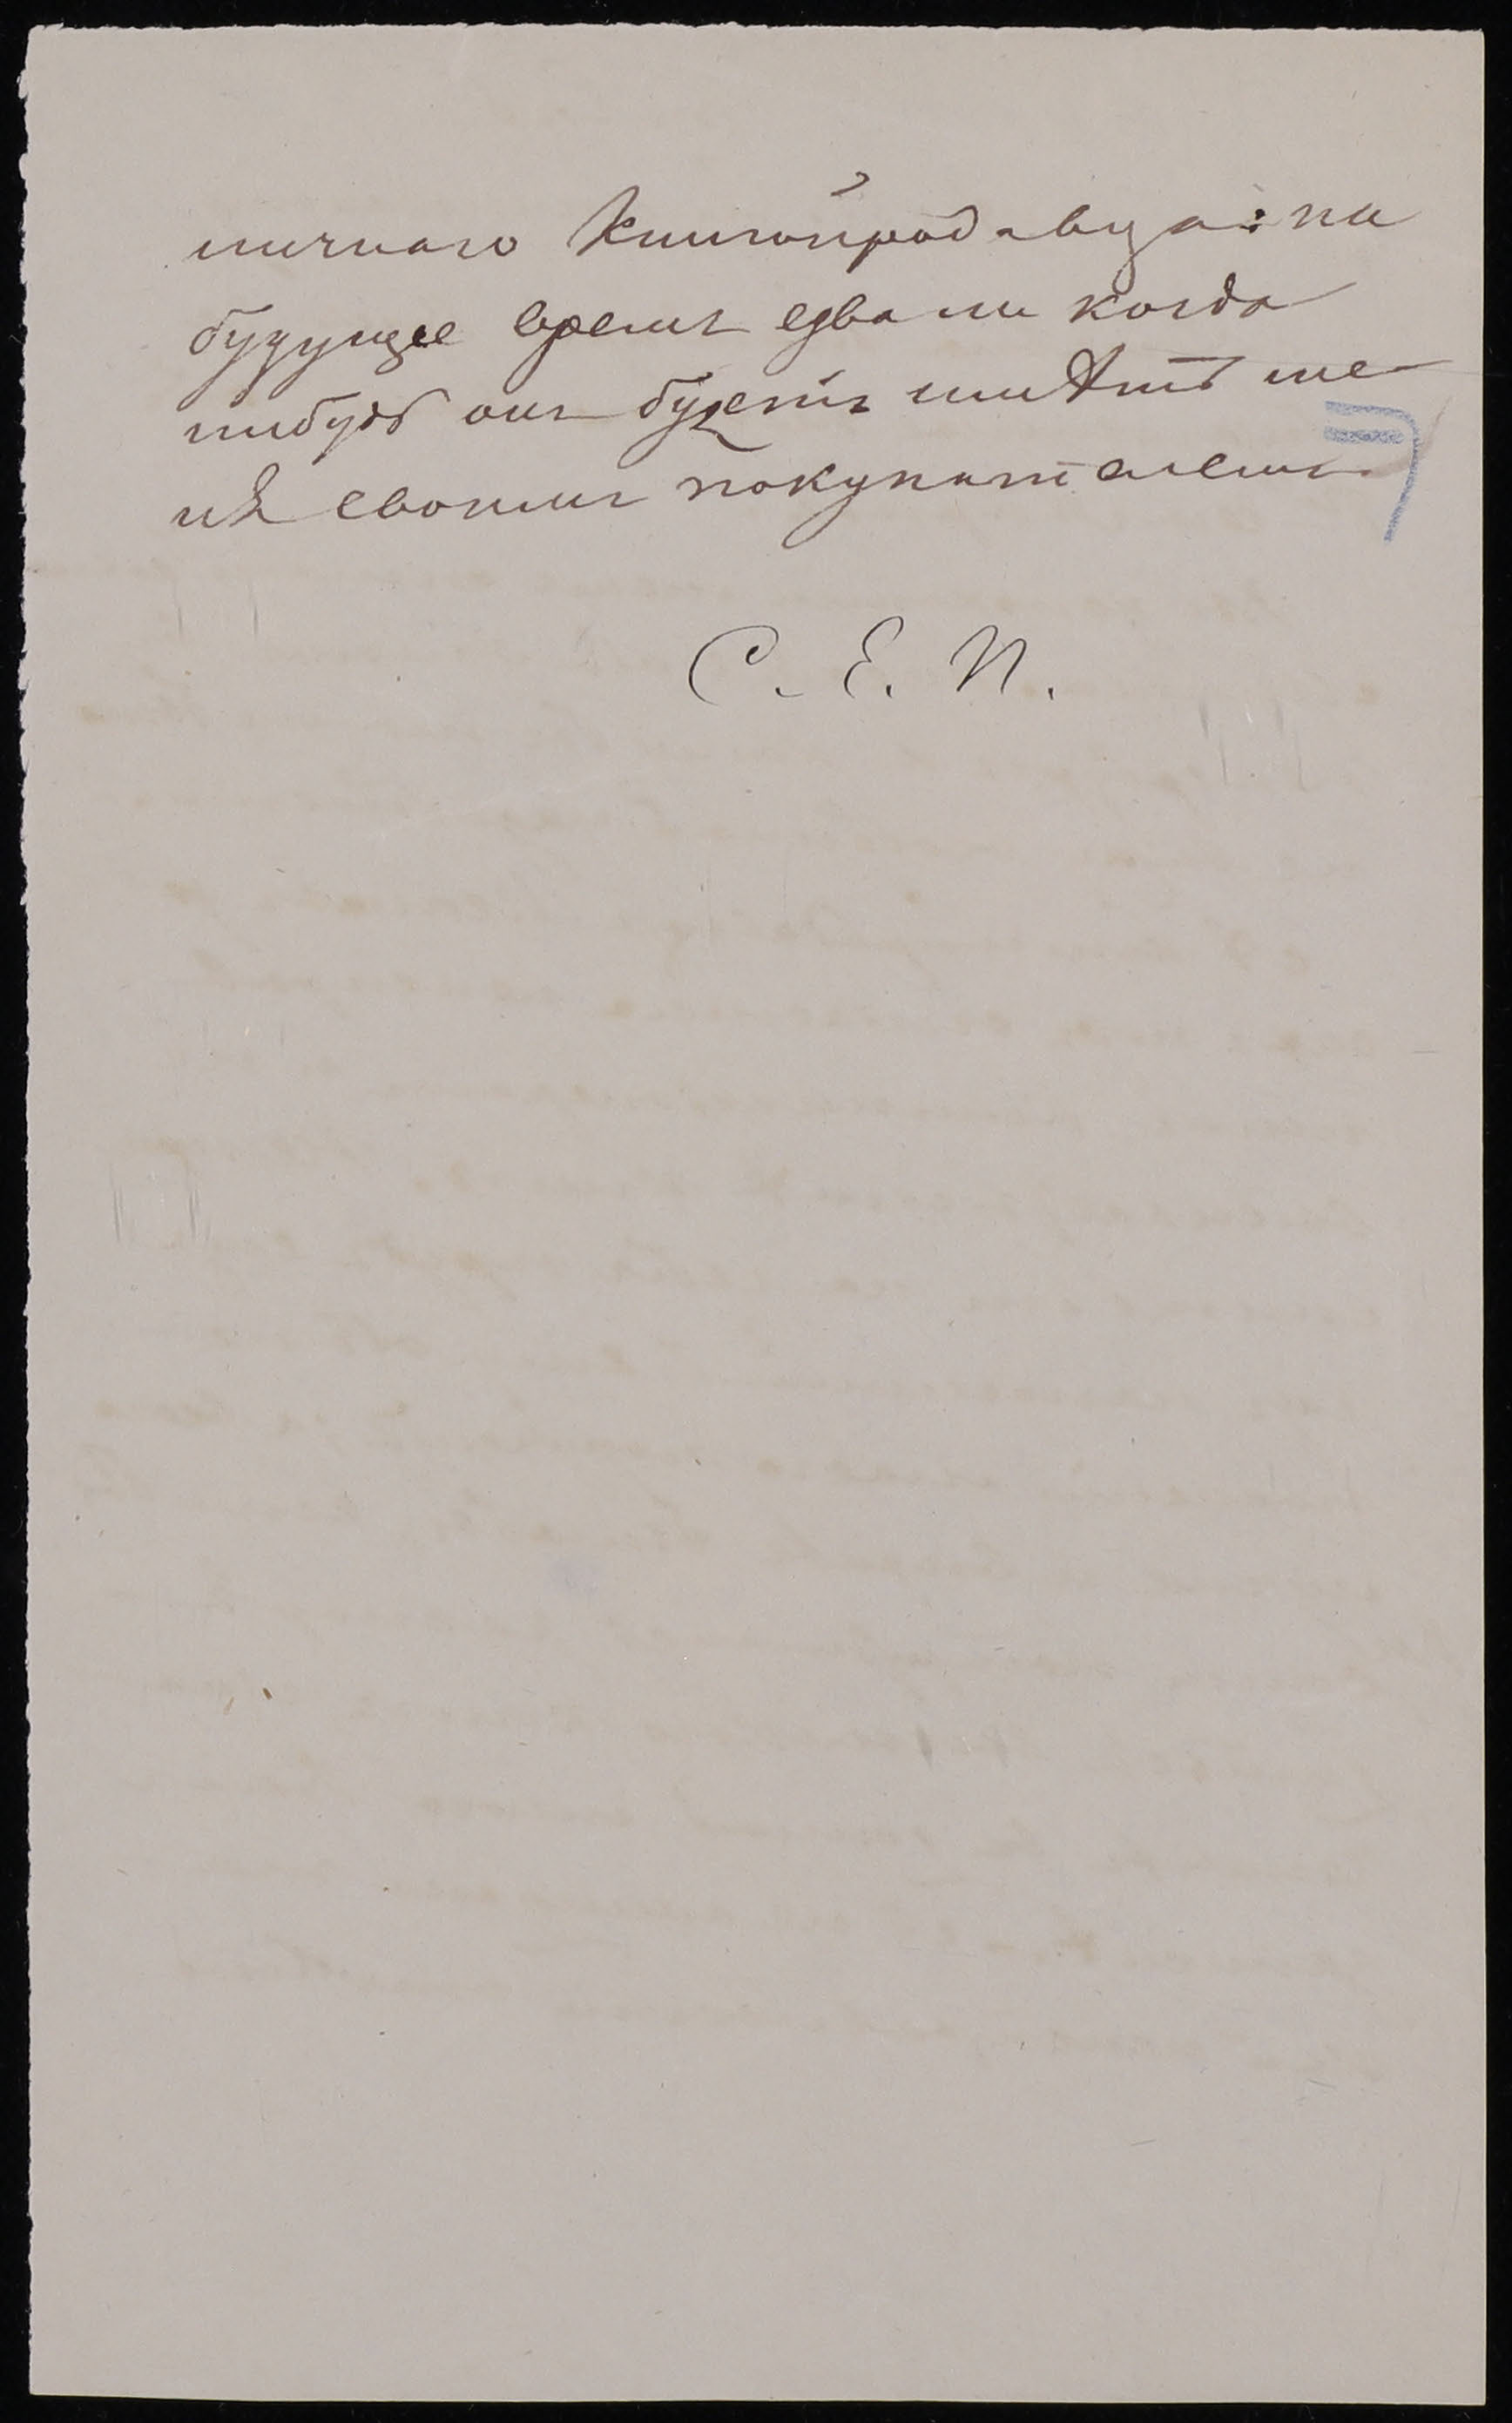 ничнаго книгопродавца: на
будущее время едва ли когда
нибудь онъ будетъ имѣть ме-
ня своимъ покупателемъ.
С. Е. П.